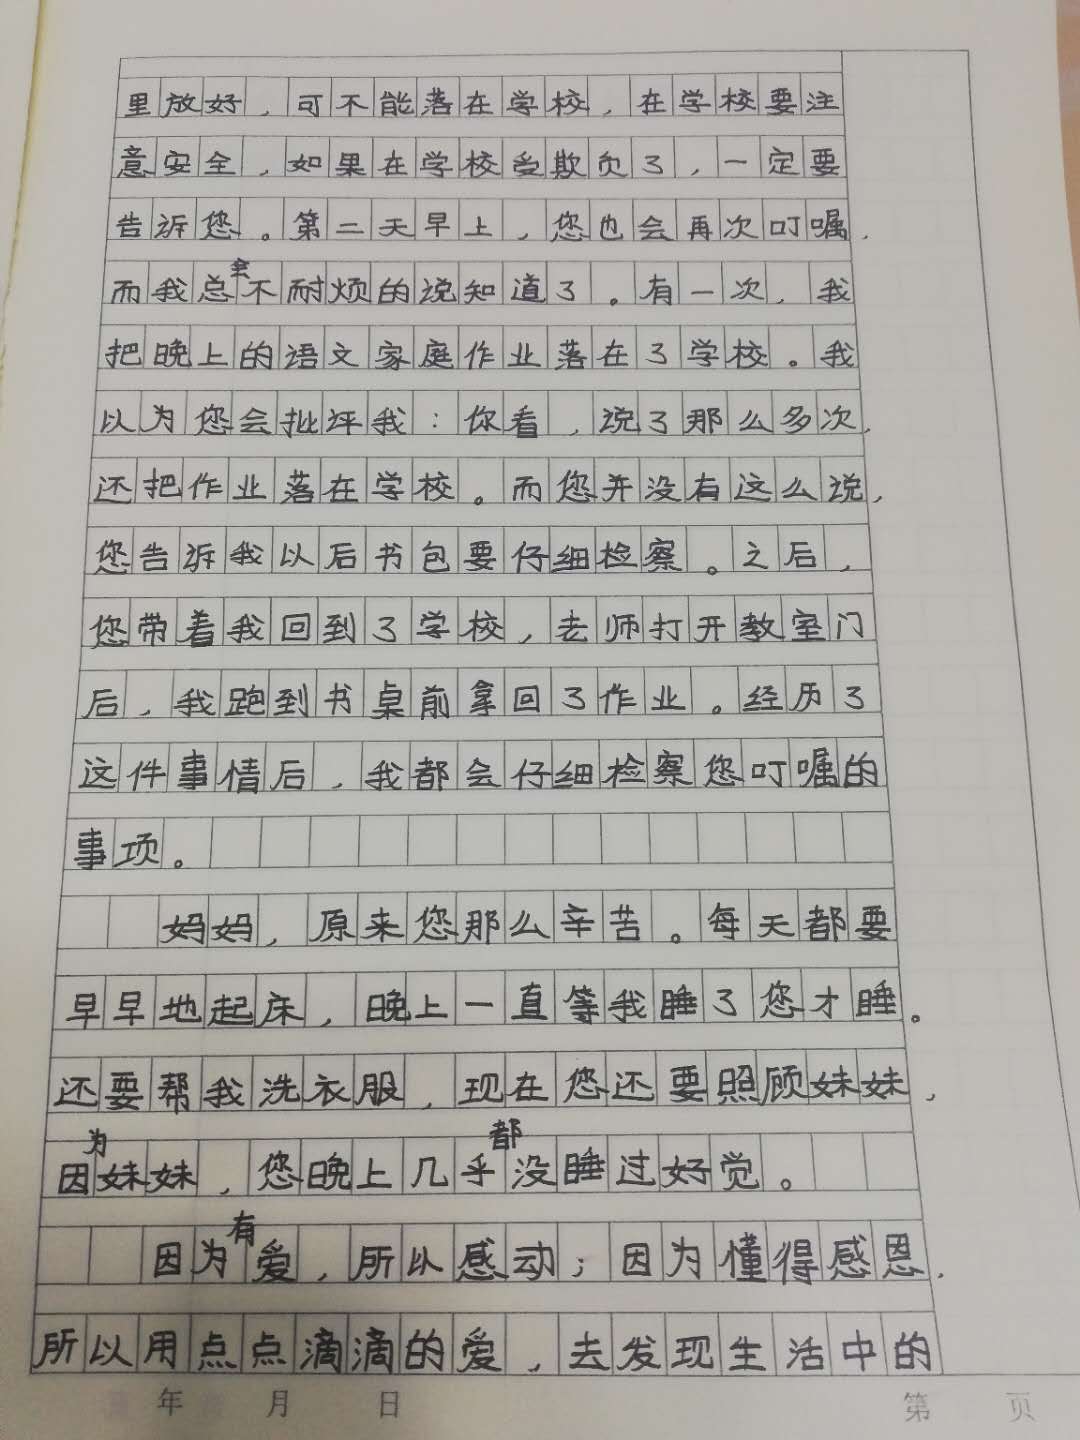 里放好，可不能落在学校，在学校要注
意安全，如果在学校受欺负了，一定要
告诉您。第二天早上，您也会再次叮嘱，
而我总会不耐烦的说知道了。有一次，我
把晚上的语文家庭作业落在了学校。我
以为您会批评我：你看，说了那么多次，
还把作业落在学校。而您并没有这么说，
您告诉我以后书包要仔细检察。之后，
您带着我回到了学校，去师打开教室门
后，我跑到书桌前拿回了作业。经历了
这件事情后，我都会仔细检察您叮嘱的
事项。
妈妈，原来您那么辛苦。每天都要
早早地起床，晚上一直等我睡了您才睡。
还要帮我洗衣服，现在您还要照顾妹妹，
因为妹妹，您晚上几乎都没睡过好觉。
因为有爱，所以感动；因为懂得感恩，
所以用点点滴滴的爱，去发现生活中的
年 月 日 第 页